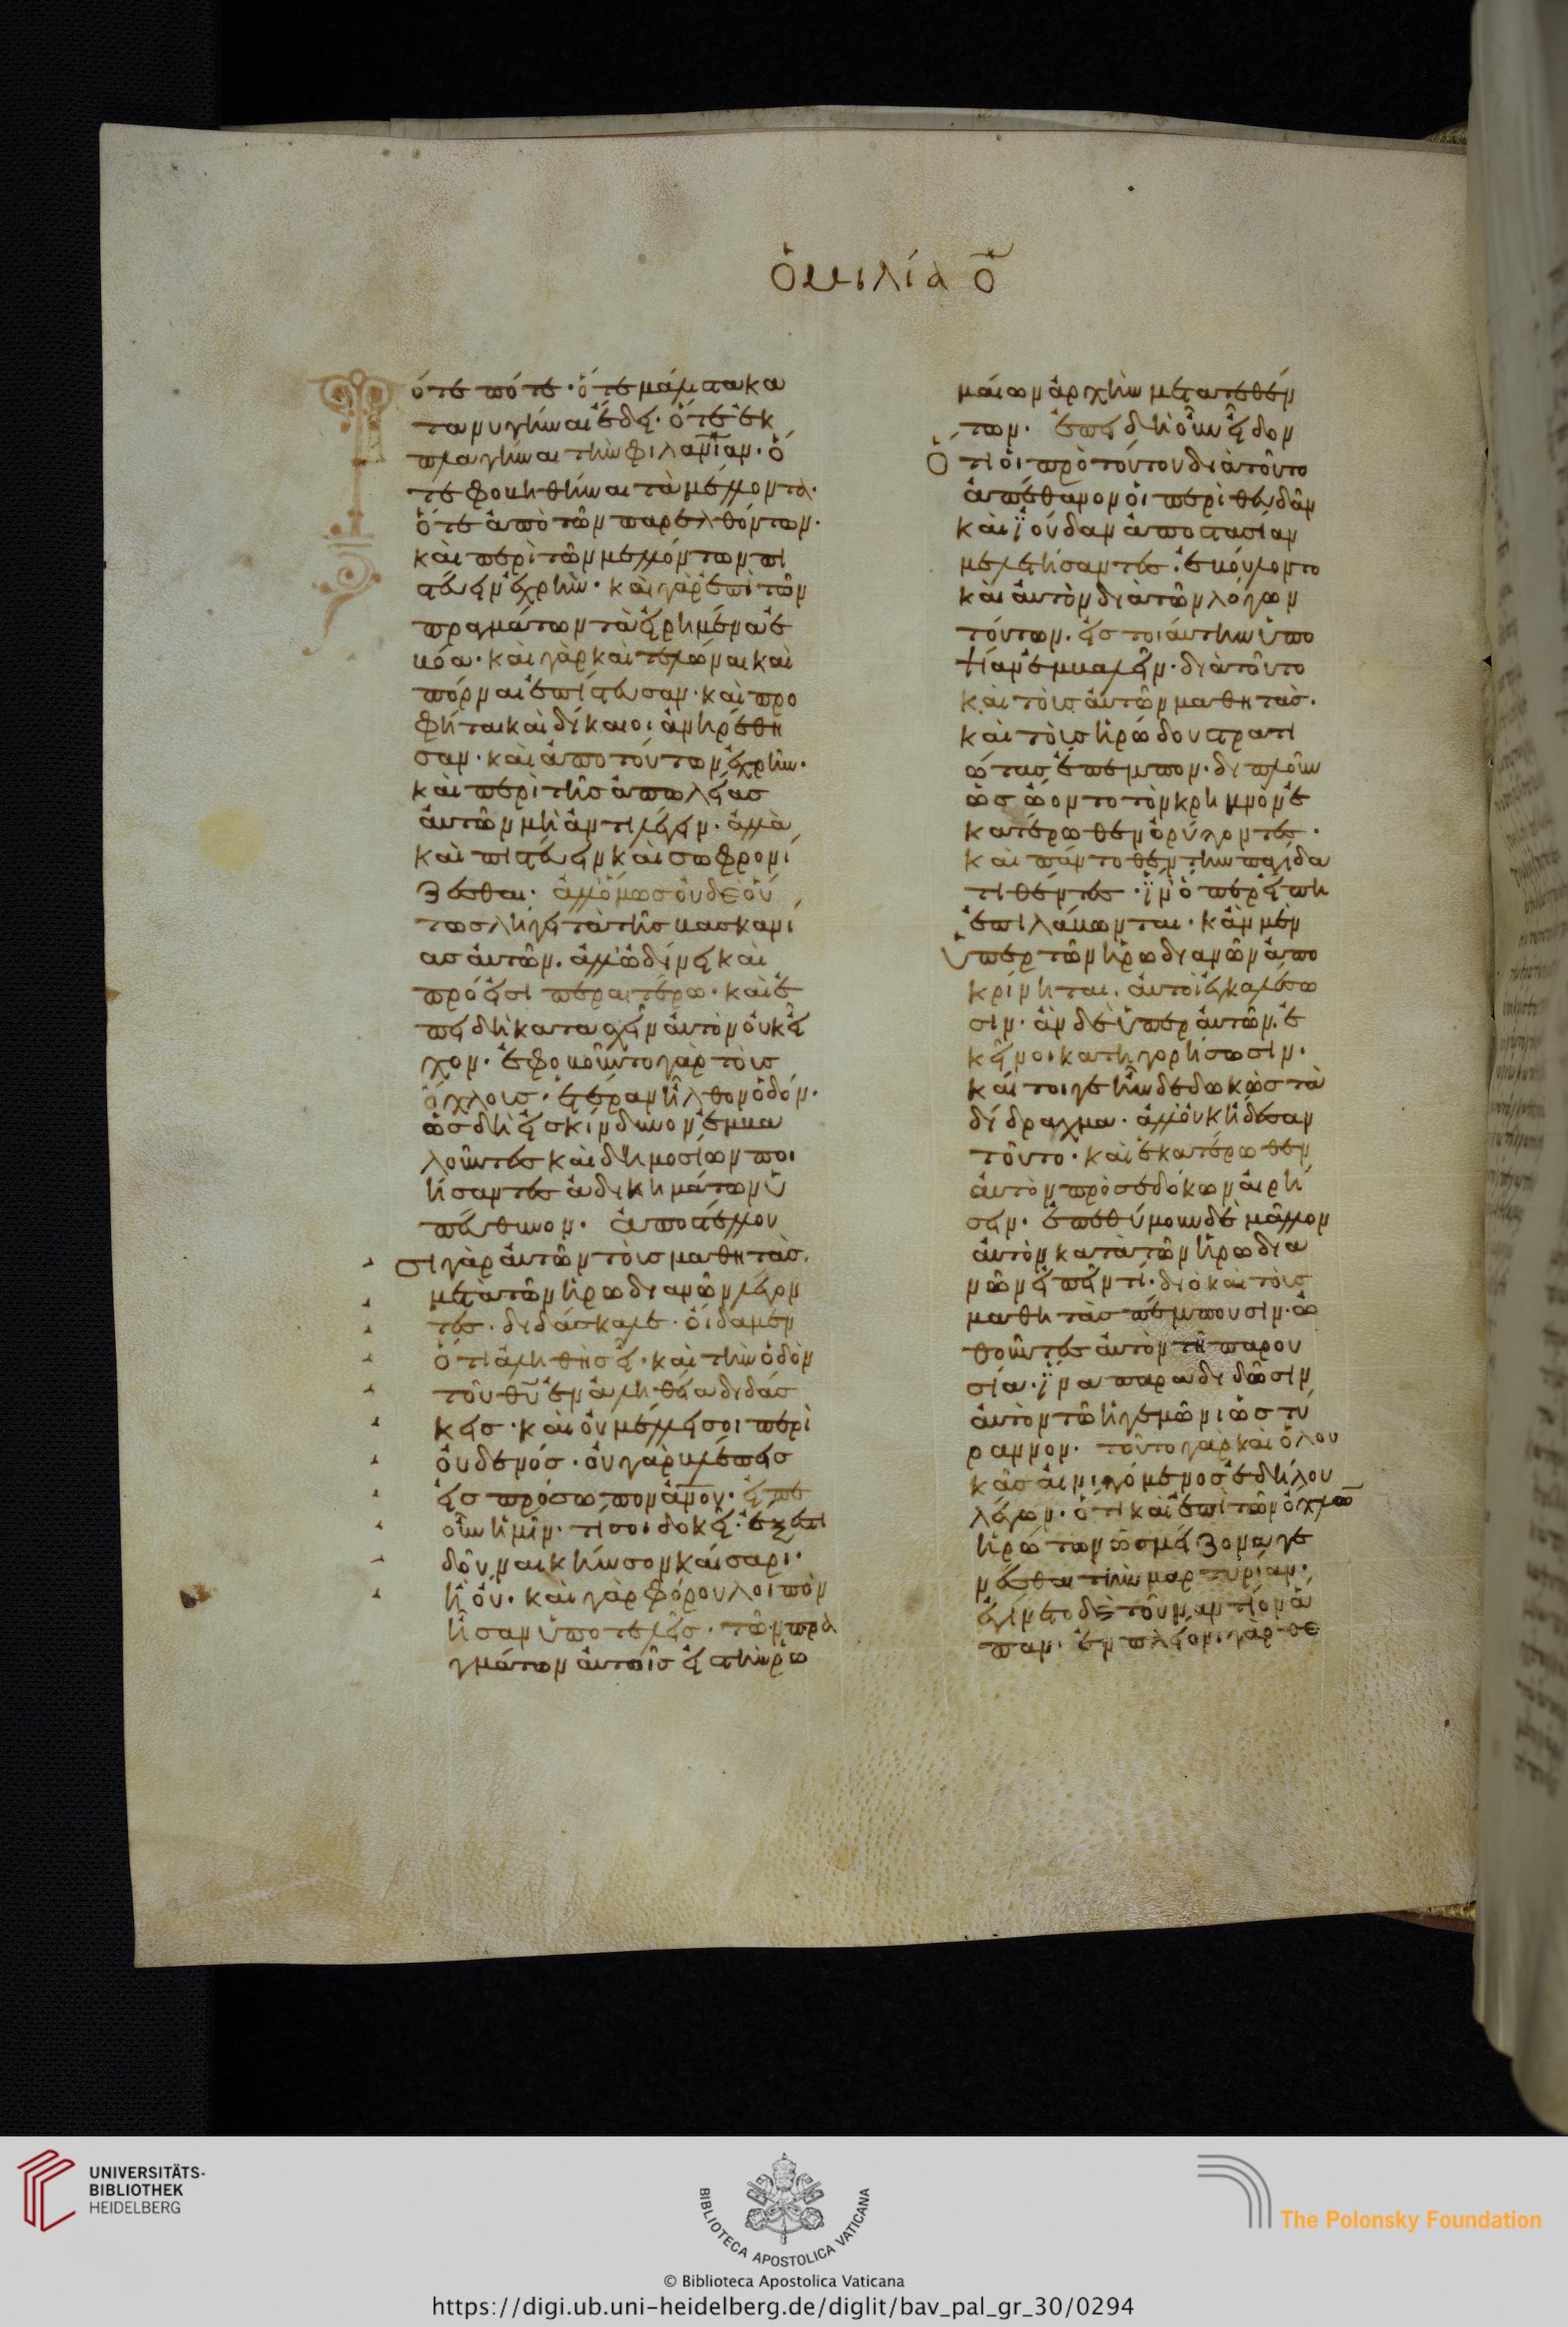 ὁμιλία ο̄
Τότε πότε· ὅτε μάλιστα κα
τανυγῆναι ἔδει· ὅτε ἐκ
πλαγῆναι τὴν φιλανίαν· ὅ
τε φοβηθῆναι τὰ μέλλοντα·
ὅτε ἀπὸ τῶν παρελθόντων·
καὶ περὶ τῶν μελλόντων πι
στεύειν ἐχρῆν· καὶ γὰρ ἐπὶ τῶν
πραγμάτων τὰ εἰρημένα ἐ
βόα· καὶ γὰρ καὶ τελῶναι καὶ
πόρναι ἐπίστευσαν· καὶ προ
φῆται καὶ δίκαιοι ἀνῃρέθη
σαν· καὶ ἀπὸ τούτων ἐχρῆν·
καὶ περὶ τῆς ἀπωλείας
αὐτῶν μὴ ἀντιλέγειν· ἀλλὰ
καὶ πιστεύειν καὶ σωφρονί
ζεσθαι· ἀλλ' ὅμως οὐδὲ οὕ
τως λήγει τὰ τῆς βασκανί
ας αὐτῶν. ἀλλ' ὠδίνει καὶ
πρόεισι περαιτέρω· καὶ ἐ
πειδὴ κατασχεῖν αὐτὸν οὐκ εἶ
χον· ἐφοβοῦντο γὰρ τοὺς
ὄχλους· ἑτέραν ἦλθον ὁδόν·
ὡς δὴ εἰς κίνδυνον ἐμβα
λοῦντες καὶ δημοσίων ποι
ήσαντες ἀδικημάτων ὑ
πεύθυνον· ἀποστέλλου
σι γὰρ αὐτῶν τοὺς μαθητὰς.
μετὰ τῶν ἡρωδιανῶν λέγον
τες· διδάσκαλε· οἴδαμεν
ὅτι ἀληθὴς εἶ· καὶ τὴν ὁδὸν
τοῦ θυ ἐν ἀληθείᾳ διδάσ
κεις· καὶ οὐ μέλλει σοι περὶ
οὐδενός· οὐ γὰρ βλέπεις
εἰς πρόσωπον ἀνου· εἰπὲ
οὖν ἡμῖν· τί σοι δοκεῖ· ἔξεστι
δοῦναι κῆνσον καίσαρι·
ἢ οὔ· καὶ γὰρ φόρου λοιπὸν
ἦσαν ὑποτελεῖς· τῶν πρα
γμάτων αὐτοῖς εἰς τὴν ῥω
μαίων ἀρχὴν μετατεθέν
των· ἐπειδὴ οὖν εἶδον
ὅτι οἱ πρὸ τούτου διὰ τοῦτο
ἀπέθανον οἱ περὶ θευδᾶν
καὶ ἰούδαν ἀποστασίαν
μελετήσαντες· ἐβούλοντο
καὶ αὐτὸν διὰ τῶν λόγων
τούτων· εἰς τοιαύτην ὑπο
ψίαν ἐμβαλεῖν· διὰ τοῦτο
καὶ τοὺς αὐτῶν μαθητὰς·
καὶ τοὺς ἡρώδου στρατι
ώτας ἔπεμπον· διπλοῦν
ὡς ᾤοντο τὸν κρημνὸν ἑ
κατέρωθεν ὀρύγοντες·
καὶ πάντοθεν τὴν παγίδα
τιθέντες· ἵν' ὅπερ εἴπῃ
ἐπιλάβωνται· κἂν μὲν
ὑπὲρ τῶν ἡρωδιανῶν ἀπο
κρίνηται. αὐτοὶ ἐγκαλέσω
σιν· ἂν δὲ ὑπὲρ αὐτῶν· ἐ
κεῖνοι κατηγορήσωσιν·
καίτοιγε ἦν δεδωκὼς τὰ
δίδραχμα· ἀλλ' οὐκ ᾔδεσαν
τοῦτο· καὶ ἑκατέρωθεν
αὐτὸν προσεδόκων αἱρή
σειν· ἐπεθύμουν δὲ μᾶλλον
αὐτὸν κατὰ τῶν ἡρωδια
νῶν εἰπεῖν τι· διὸ καὶ τοὺς
μαθητὰς πέμπουσιν· ὠ
θοῦντες αὐτὸν τῇ παρου
σίᾳ· ἵνα παραδιδῶσιν
αὐτὸν τῷ ἡγεμόνι ὡς τύ
ραννον· τοῦτο γὰρ καὶ ὁ λου
κᾶς αἰνιγόμενος ἐδήλου
λέγων· ὅτι καὶ ἐπὶ τῶν ὄχλω
ἠρώτων ὡς μείζονα γε
νέσθαι τὴν μαρτυρίαν·
ἐγίνετο δὲ τοὐναντίον ἅ
παν· ἐν πλείονι γὰρ θε
UNIVERSITÄTS-
BIBLIOTHEK
HEIDELBERG
BIBLIOTECA APOSTOLICA VATICANA
The Polonsky Foundation
© Biblioteca Apostolica Vaticana
https://digi.ub.uni-heidelberg.de/diglit/bav_pal_gr_30/0294